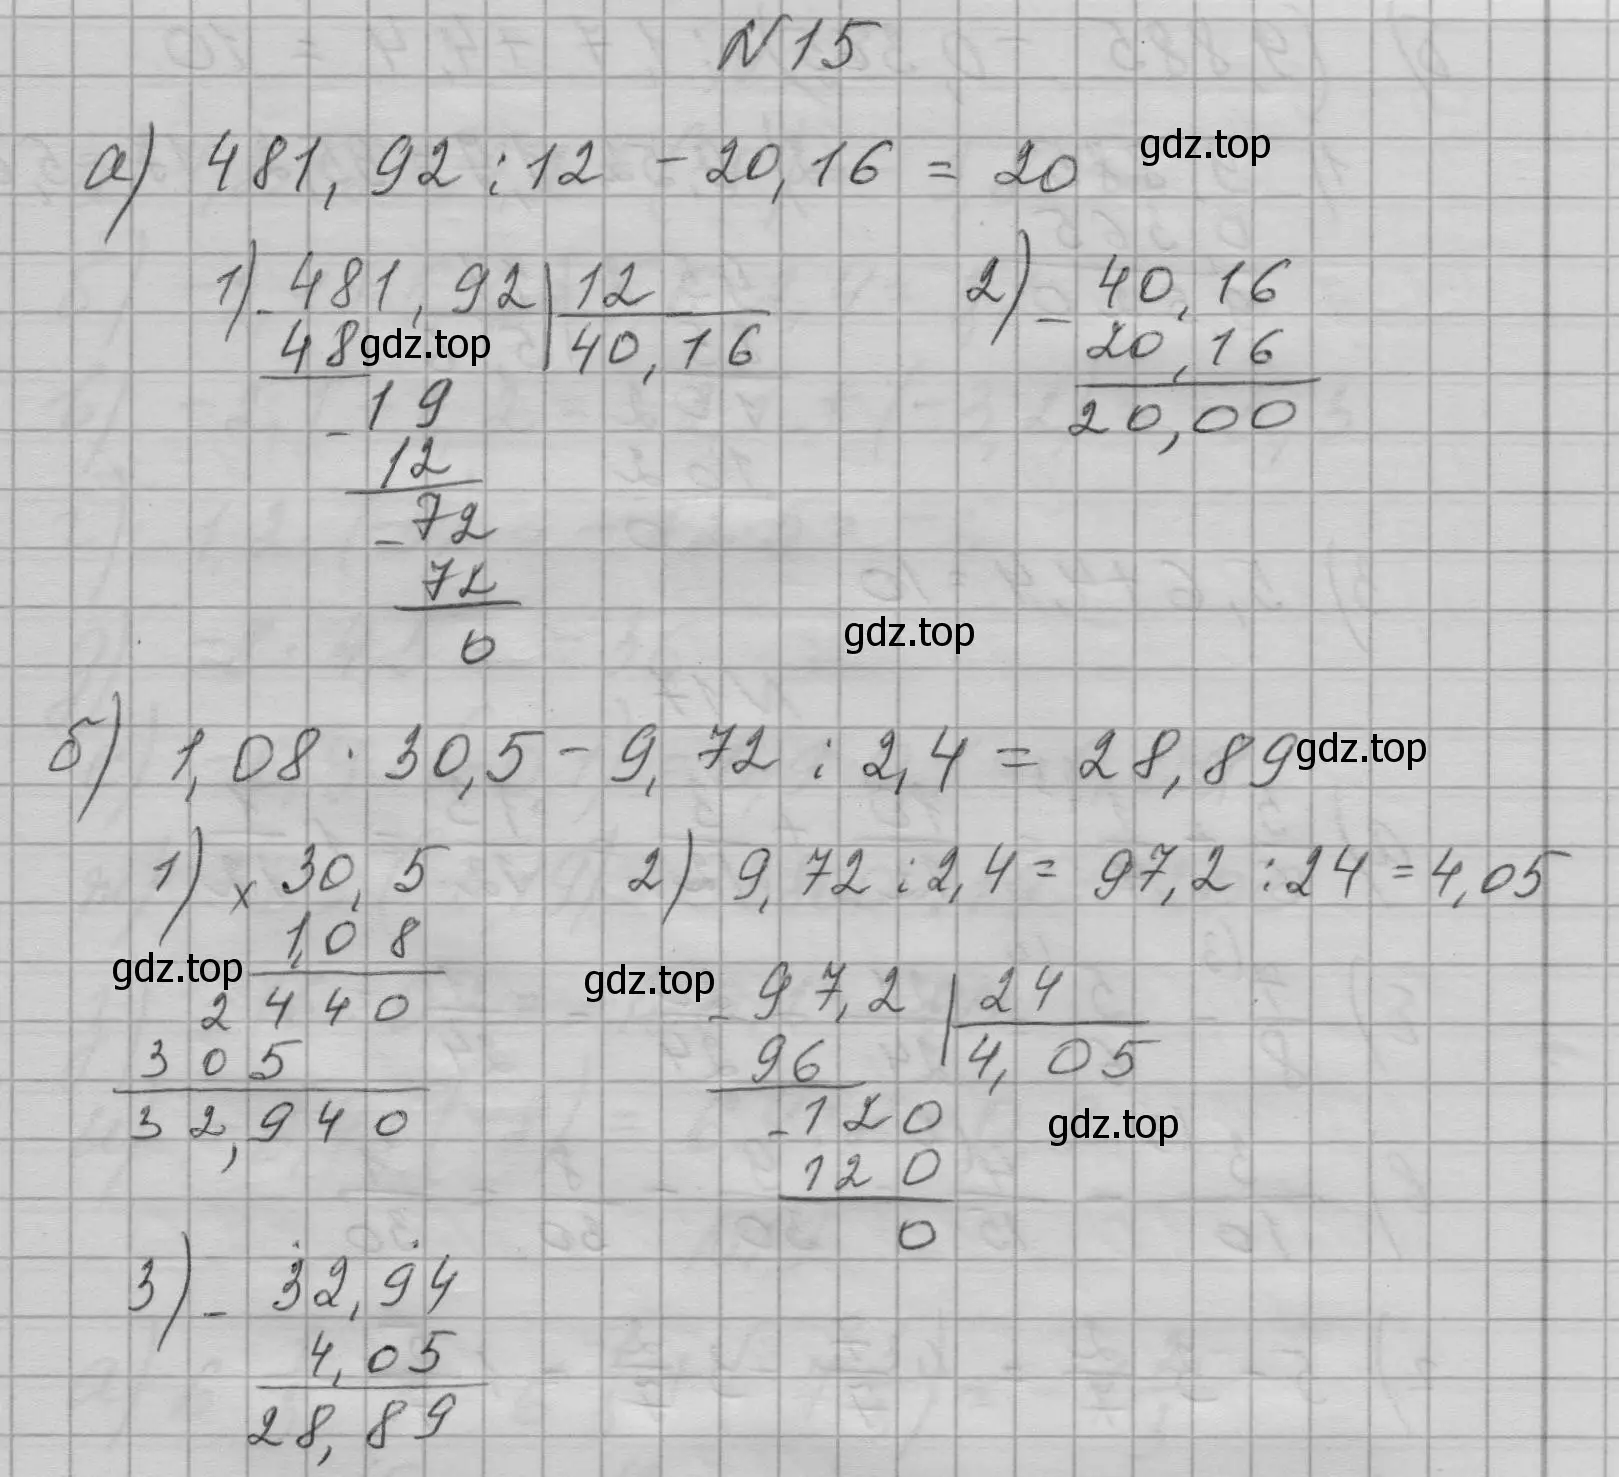 N 15
а) 481,92 : 12 - 20,16 = 20
gdz.top
1) - 481,92 | 12
48 gdz.top 40,16
- 19
12
- 72
72
0
2) - 40,16
20,16
20,00
gdz.top
б) 1,08 · 30,5 - 9,72 : 2,4 = 28,89
gdz.top
1) x 30,5
1,08
gdz.top
2440
305
32,940
2) 9,72 : 2,4 = 97,2 : 24 = 4,05
gdz.top
- 97,2 | 24
96 4,05
- 120
120
0
gdz.top
3) - 32,94
4,05
28,89